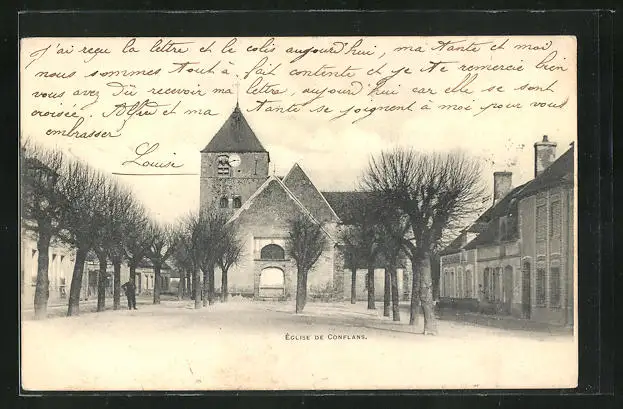 J'ai reçu la lettre et le colis aujourd'hui, ma tante et moi
nous sommes tout à fait contente et je te remercie bien
vous avez dû recevoir ma lettre, aujourd'hui car elle se sont
croisée. Alfred et ma tante se joignent à moi pour vous
embrasser
Louise
ÉGLISE DE CONFLANS.